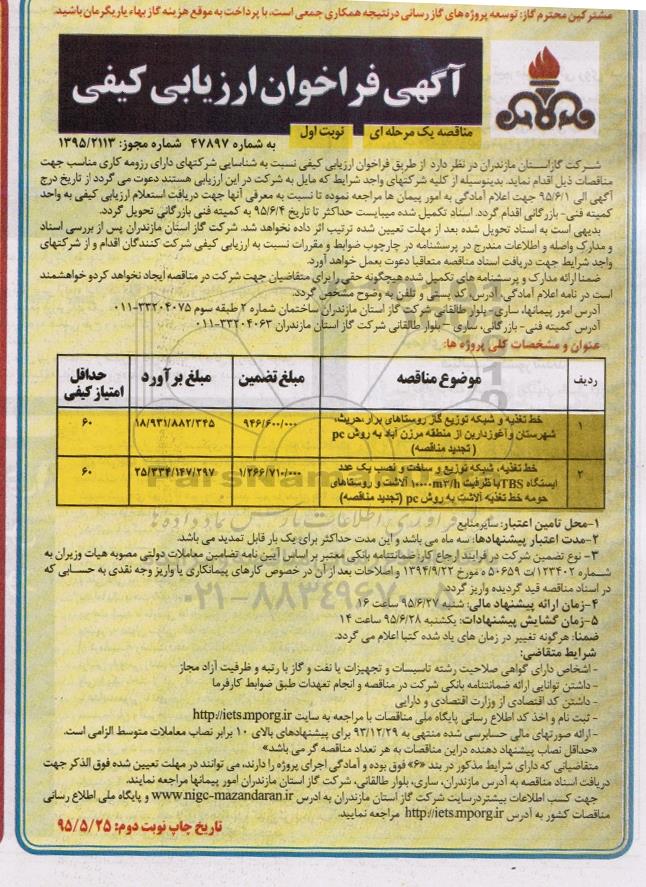 مشترکین محترم گاز: توسعه پروژه های گاز رسانی در نتیجه همکاری جمعی است، با پرداخت به موقع هزینه گاز بهاء یاریگر مان باشید.
آگهی فراخوان ارزیابی کیفی
مناقصه یک مرحله ای نوبت اول به شماره ۴۷۸۹۷ شماره مجوز: ۱۳۹۵/۲۱۱۳
شرکت گاز استان مازندران در نظر دارد از طریق فراخوان ارزیابی کیفی نسبت به شناسایی شرکتهای دارای رزومه کاری مناسب جهت
مناقصات ذیل اقدام نماید. بدینوسیله از کلیه شرکتهای واجد شرایط که مایل به شرکت در این ارزیابی هستند دعوت می گردد از تاریخ درج
آگهی الی ۹۵/۶/۱ جهت اعلام آمادگی به امور پیمان ها مراجعه نموده تا نسبت به معرفی آنها جهت دریافت استعلام ارزیابی کیفی به واحد
کمیته فنی- بازرگانی اقدام گردد. اسناد تکمیل شده میبایست حداکثر تا تاریخ ۹۵/۶/۴ به کمیته فنی بازرگانی تحویل گردد.
بدیهی است به اسناد تحویل شده بعد از مهلت تعیین شده ترتیب اثر داده نخواهد شد. شرکت گاز استان مازندران پس از بررسی اسناد
و مدارک واصله و اطلاعات مندرج در پرسشنامه در چارچوب ضوابط و مقررات نسبت به ارزیابی کیفی شرکت کنندگان اقدام و از شرکتهای
واجد شرایط جهت دریافت اسناد مناقصه متعاقبا دعوت بعمل خواهد آورد.
ضمنا ارائه مدارک و پرسشنامه های تکمیل شده هیچگونه حقی را برای متقاضیان جهت شرکت در مناقصه ایجاد نخواهد کردو خواهشمند
است در نامه اعلام آمادگی، آدرس، کد پستی و تلفن به وضوح مشخص گردد.
آدرس امور پیمانها، ساری- بلوار طالقانی شرکت گاز استان مازندران ساختمان شماره ۲ طبقه سوم ۳۳۲۰۴۰۷۵-۰۱۱
آدرس کمیته فنی- بازرگانی، ساری - بلوار طالقانی شرکت گاز استان مازندران ۳۳۲۰۴۰۶۳-۰۱۱
عنوان و مشخصات کلی پروژه ها:
ردیف موضوع مناقصه مبلغ تضمین مبلغ برآورد حداقل امتیاز کیفی
۱ خط تغذیه و شبکه توزیع گاز روستاهای برار، حریث، ۹۴۶/۶۰۰/۰۰۰ ۱۸/۹۳۱/۸۸۲/۳۴۵ ۶۰
شهرستان وآغوزدارین از منطقه مرزن آباد به روش pc
(تجدید مناقصه)
۲ خط تغذیه، شبکه توزیع و ساخت و نصب یک عدد ۱/۲۶۶/۷۱۰/۰۰۰ ۲۵/۳۳۴/۱۴۷/۲۹۷ ۶۰
ایستگاه TBS با ظرفیت ۱۰۰۰۰m۳/h آلاشت و روستاهای
حومه خط تغذیه آلاشت به روش pc (تجدید مناقصه)
۱-محل تامین اعتبار: سایر منابع
۲-مدت اعتبار پیشنهادها: سه ماه می باشد و این مدت حداکثر برای یک بار قابل تمدید می باشد.
۳- نوع تضمین شرکت در فرایند ارجاع کار: ضمانتنامه بانکی معتبر بر اساس آیین نامه تضامین معاملات دولتی مصوبه هیات وزیران به
شماره ۱۲۳۴۰۲/ت ۵۰۶۵۹ ه مورخ ۱۳۹۴/۹/۲۲ و اصلاحات بعد از آن در خصوص کارهای پیمانکاری یا واریز وجه نقدی به حسابی که
در اسناد مناقصه قید گردیده واریز گردد.
۴-زمان ارائه پیشنهاد مالی: شنبه ۹۵/۶/۲۷ ساعت ۱۶
۵-زمان گشایش پیشنهادات: یکشنبه ۹۵/۶/۲۸ ساعت ۱۴
ضمنا: هرگونه تغییر در زمان های یاد شده کتبا اعلام می گردد.
شرایط متقاضی:
- اشخاص دارای گواهی صلاحیت رشته تاسیسات و تجهیزات یا نفت و گاز با رتبه و ظرفیت آزاد مجاز
- داشتن توانایی ارائه ضمانتنامه بانکی شرکت در مناقصه و انجام تعهدات طبق ضوابط کارفرما
- داشتن کد اقتصادی از وزارت اقتصادی و دارایی
- ثبت نام و اخذ کد اطلاع رسانی پایگاه ملی مناقصات با مراجعه به سایت http://iets.mporg.ir
- ارائه صورتهای مالی حسابرسی شده منتهی به ۹۳/۱۲/۲۹ برای پیشنهادهای بالای ۱۰ برابر نصاب معاملات متوسط الزامی است.
«حداقل نصاب پیشنهاد دهنده دراین مناقصات به هر تعداد مناقصه گر می باشد»
متقاضیانی که دارای شرایط مذکور در بند «۶» فوق بوده و آمادگی اجرای پروژه را دارند، می توانند در مهلت تعیین شده فوق الذکر جهت
دریافت اسناد مناقصه به آدرس مازندران، ساری، بلوار طالقانی، شرکت گاز استان مازندران امور پیمانها مراجعه نمایند.
جهت کسب اطلاعات بیشتر درسایت شرکت گاز استان مازندران به ادرس www.nigc-mazandaran.ir و پایگاه ملی اطلاع رسانی
مناقصات کشور به آدرس http://iets.mporg.ir مراجعه نمایید.
تاریخ چاپ نوبت دوم: ۹۵/۵/۲۵
۰۲۱-۸۸۳۴۹۶۷۰-۵